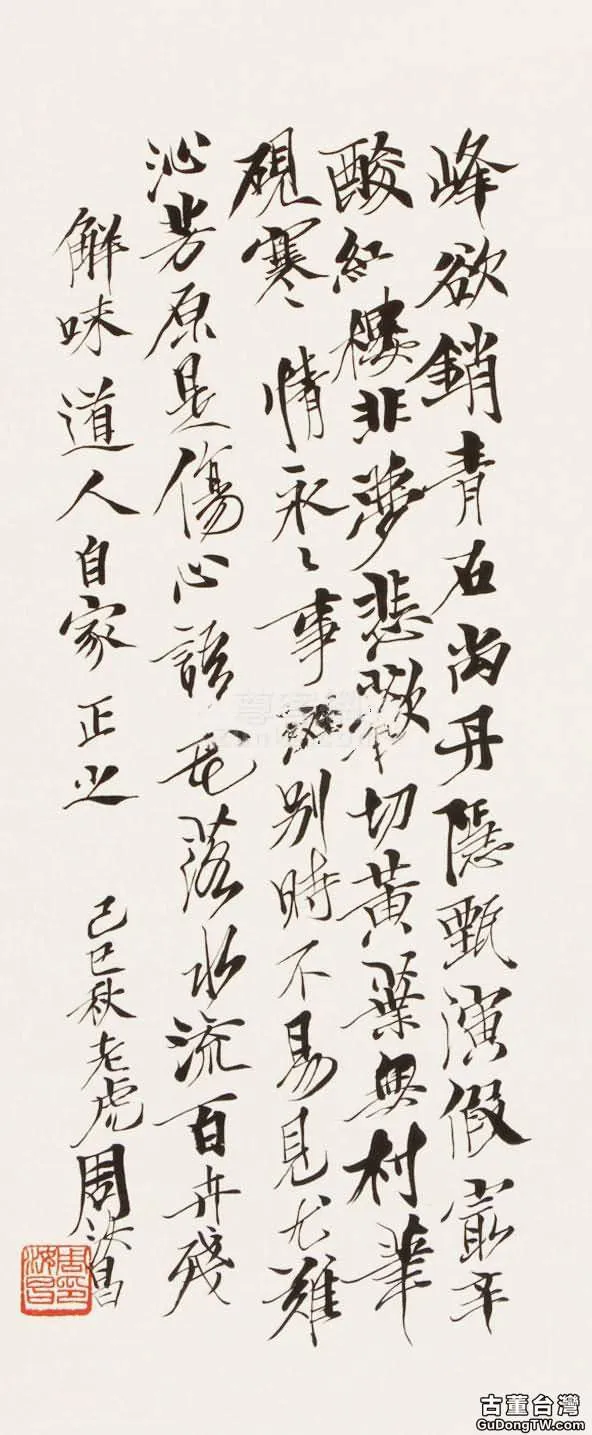 峰欲銷青石尚丹隱甄演假最辛
酸紅樓非夢悲歌切黃葉無村筆
硯寒 情永〻事般〻別時不易見尤難
沁芳原是傷心語花落水流百卉殘
解味道人自家正之 己巳秋老虎周汝昌
周汝昌印
古董台灣
GuDongTW.com